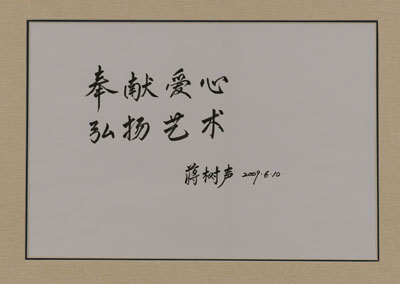 奉献爱心
弘扬艺术
蒋树声 2009.6.10